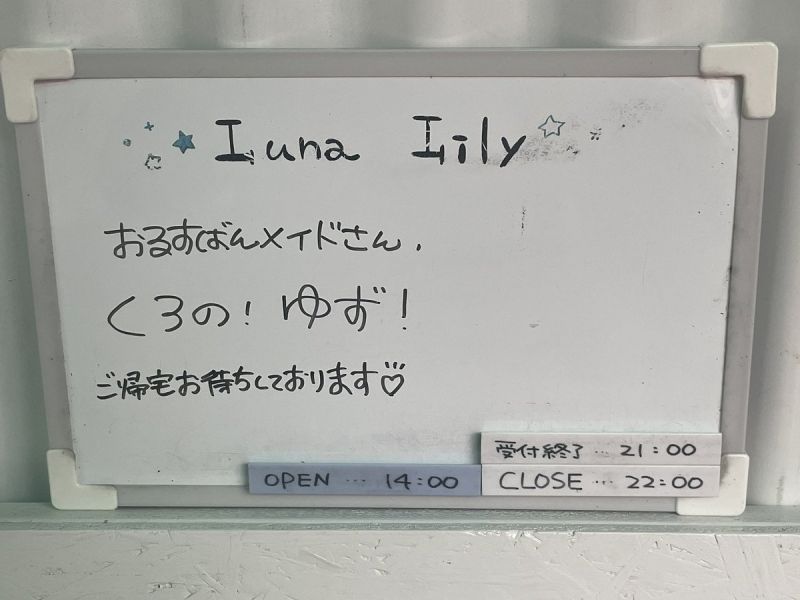 Luna Lily
おるすばんメイドさん.
くろの! ゆず!
ご帰宅お待ちしております♡
受付終了…21:00
OPEN…14:00 CLOSE…22:00